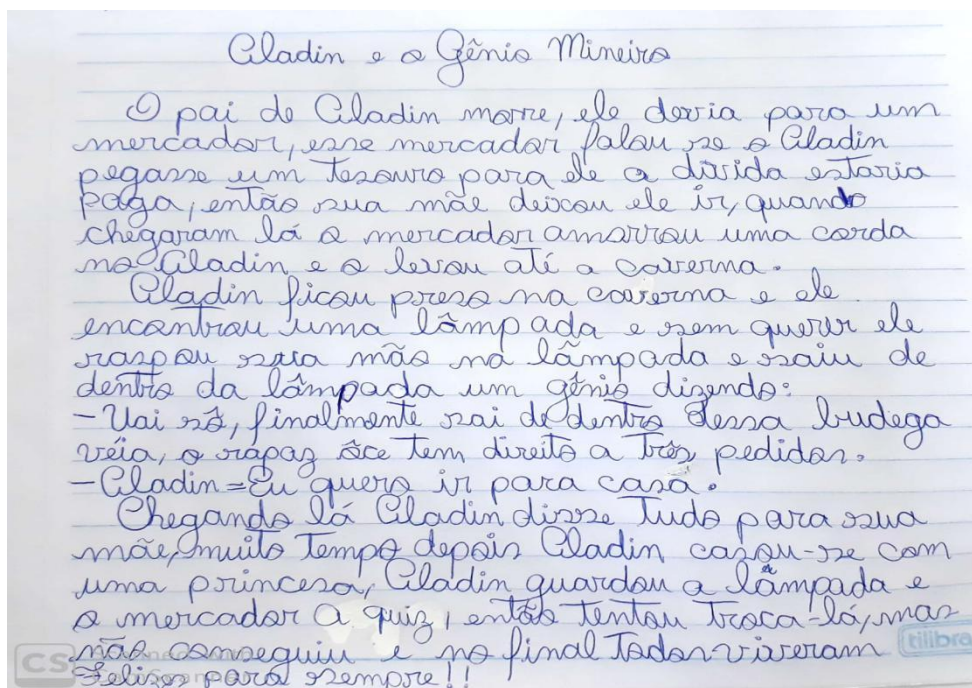 Aladin e o Gênio Mineiro
O pai de Aladin morre, ele devia para um
mercador, esse mercador falou se o Aladin
pegasse um tesouro para ele a dívida estaria
paga, então sua mãe deixou ele ir, quando
chegaram lá o mercador amarrou uma corda
no Aladin e o levou até a caverna.
Aladin ficou preso na caverna e ele
encontrou uma lâmpada e sem querer ele
raspou sua mão na lâmpada e saiu de
dentro da lâmpada um gênio dizendo:
-Uai sô, finalmente sai de dentro dessa budega
véia, o rapaz ôce tem direito a três pedidos.
-Aladin=Eu quero ir para casa.
Chegando lá Aladin disse tudo para sua
mãe, muito tempo depois Aladin casou-se com
uma princesa, Aladin guardou a lâmpada e
o mercador a quiz, então tentou troca-lá, mas
não conseguiu e no final todos viveram
Felizes para sempre!!
tilibra
CS